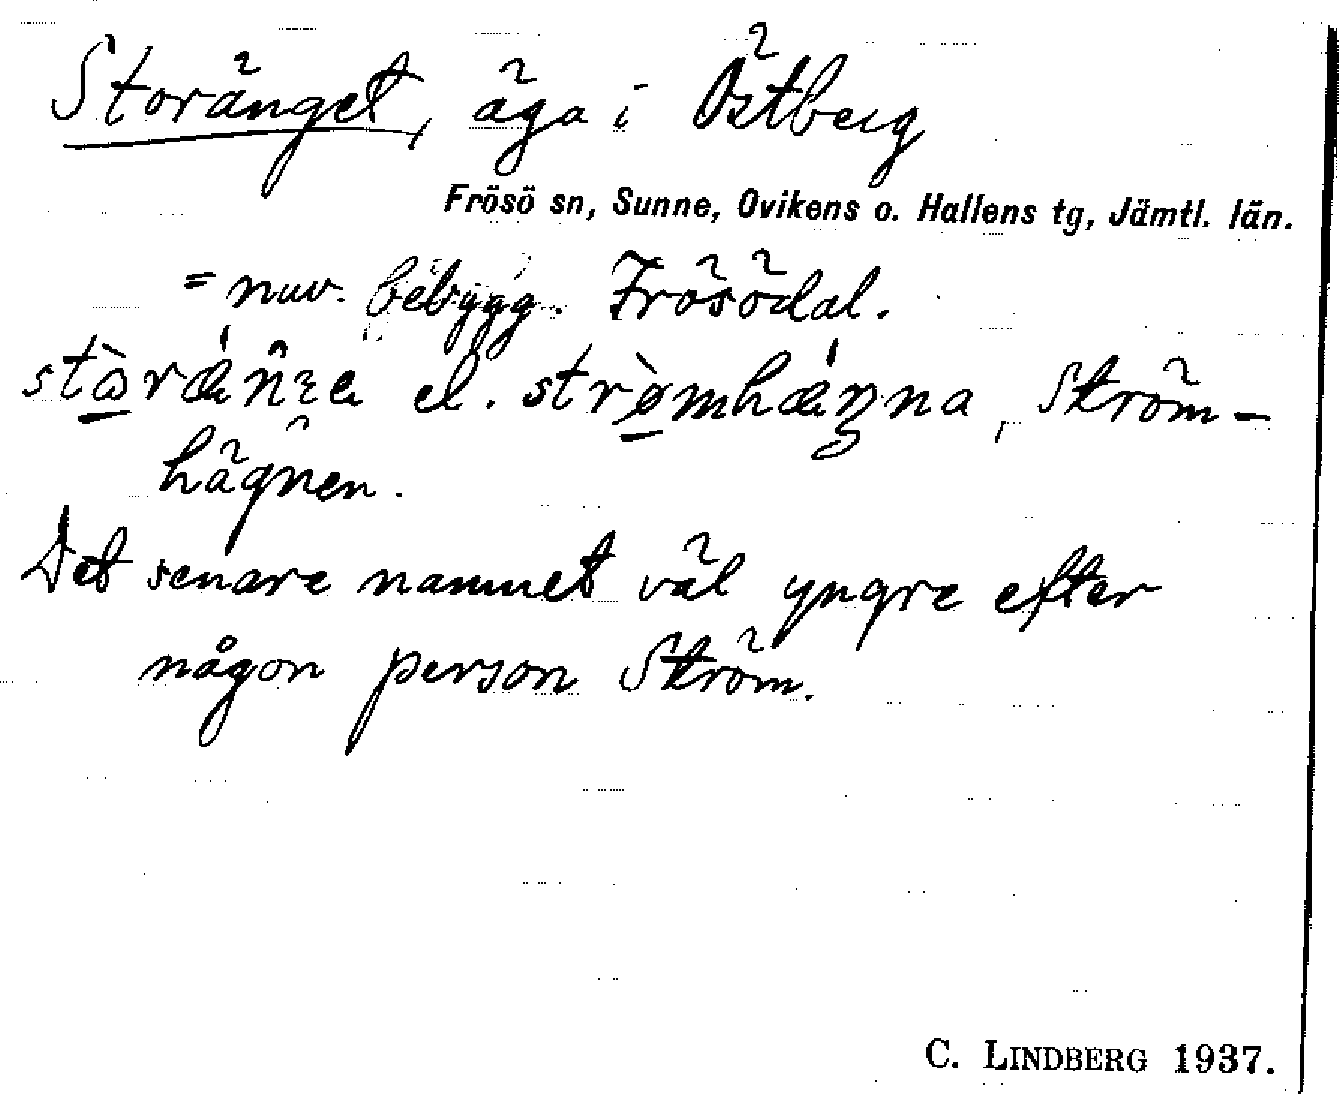 Storänget, äga i Östberg
Frösö sn, Sunne, Ovikens o. Hallens tg, Jämtl. län.
= nuv. bebygg. Frösödal.
el. Ström-
hägnen.
Det senare namnet väl yngre efter
någon person Ström.
C. LINDBERG 1937.